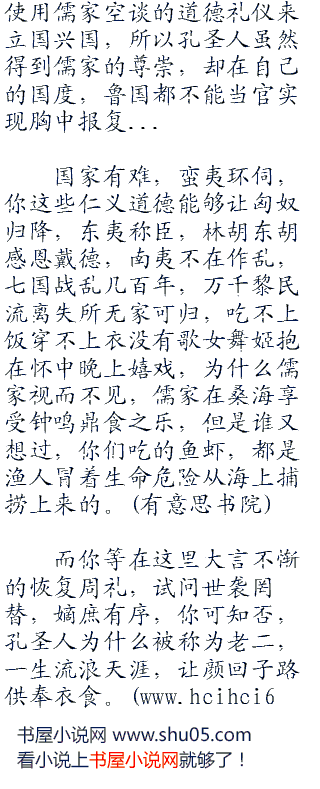 使用儒家空谈的道德礼仪来
立国兴国，所以孔圣人虽然
得到儒家的尊崇，却在自己
的国度，鲁国都不能当官实
现胸中报复...
国家有难，蛮夷环伺，
你这些仁义道德能够让匈奴
归降，东夷称臣，林胡东胡
感恩戴德，南夷不在作乱，
七国战乱几百年，万千黎民
流离失所无家可归，吃不上
饭穿不上衣没有歌女舞姬抱
在怀中晚上嬉戏，为什么儒
家视而不见，儒家在桑海享
受钟鸣鼎食之乐，但是谁又
想过，你们吃的鱼虾，都是
渔人冒着生命危险从海上捕
捞上来的。(有意思书院)
而你等在这里大言不惭
的恢复周礼，试问世袭罔
替，嫡庶有序，你可知否，
孔圣人为什么被称为老二，
一生流浪天涯，让颜回子路
供奉衣食。(www.hcihci6
书屋小说网 www.shu05.com
看小说上书屋小说网就够了！